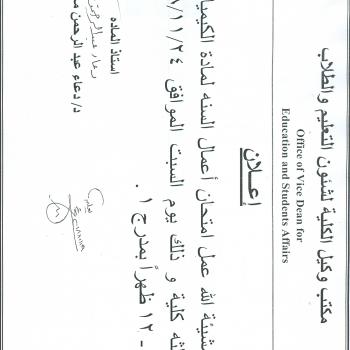 مكتب وكيل الكلية لشئون التعليم والطلاب
Office of Vice Dean for
Education and Students Affairs
إعلان
شيئة الله عمل امتحان أعمال السنه لمادة الكيميا
كلية و ذلك يوم السبت الموافق ١١/٢٤
- ١٢ ظهراً بمدرج ١ .
استاذ الماده
د/ دعاء عبد الرحمن